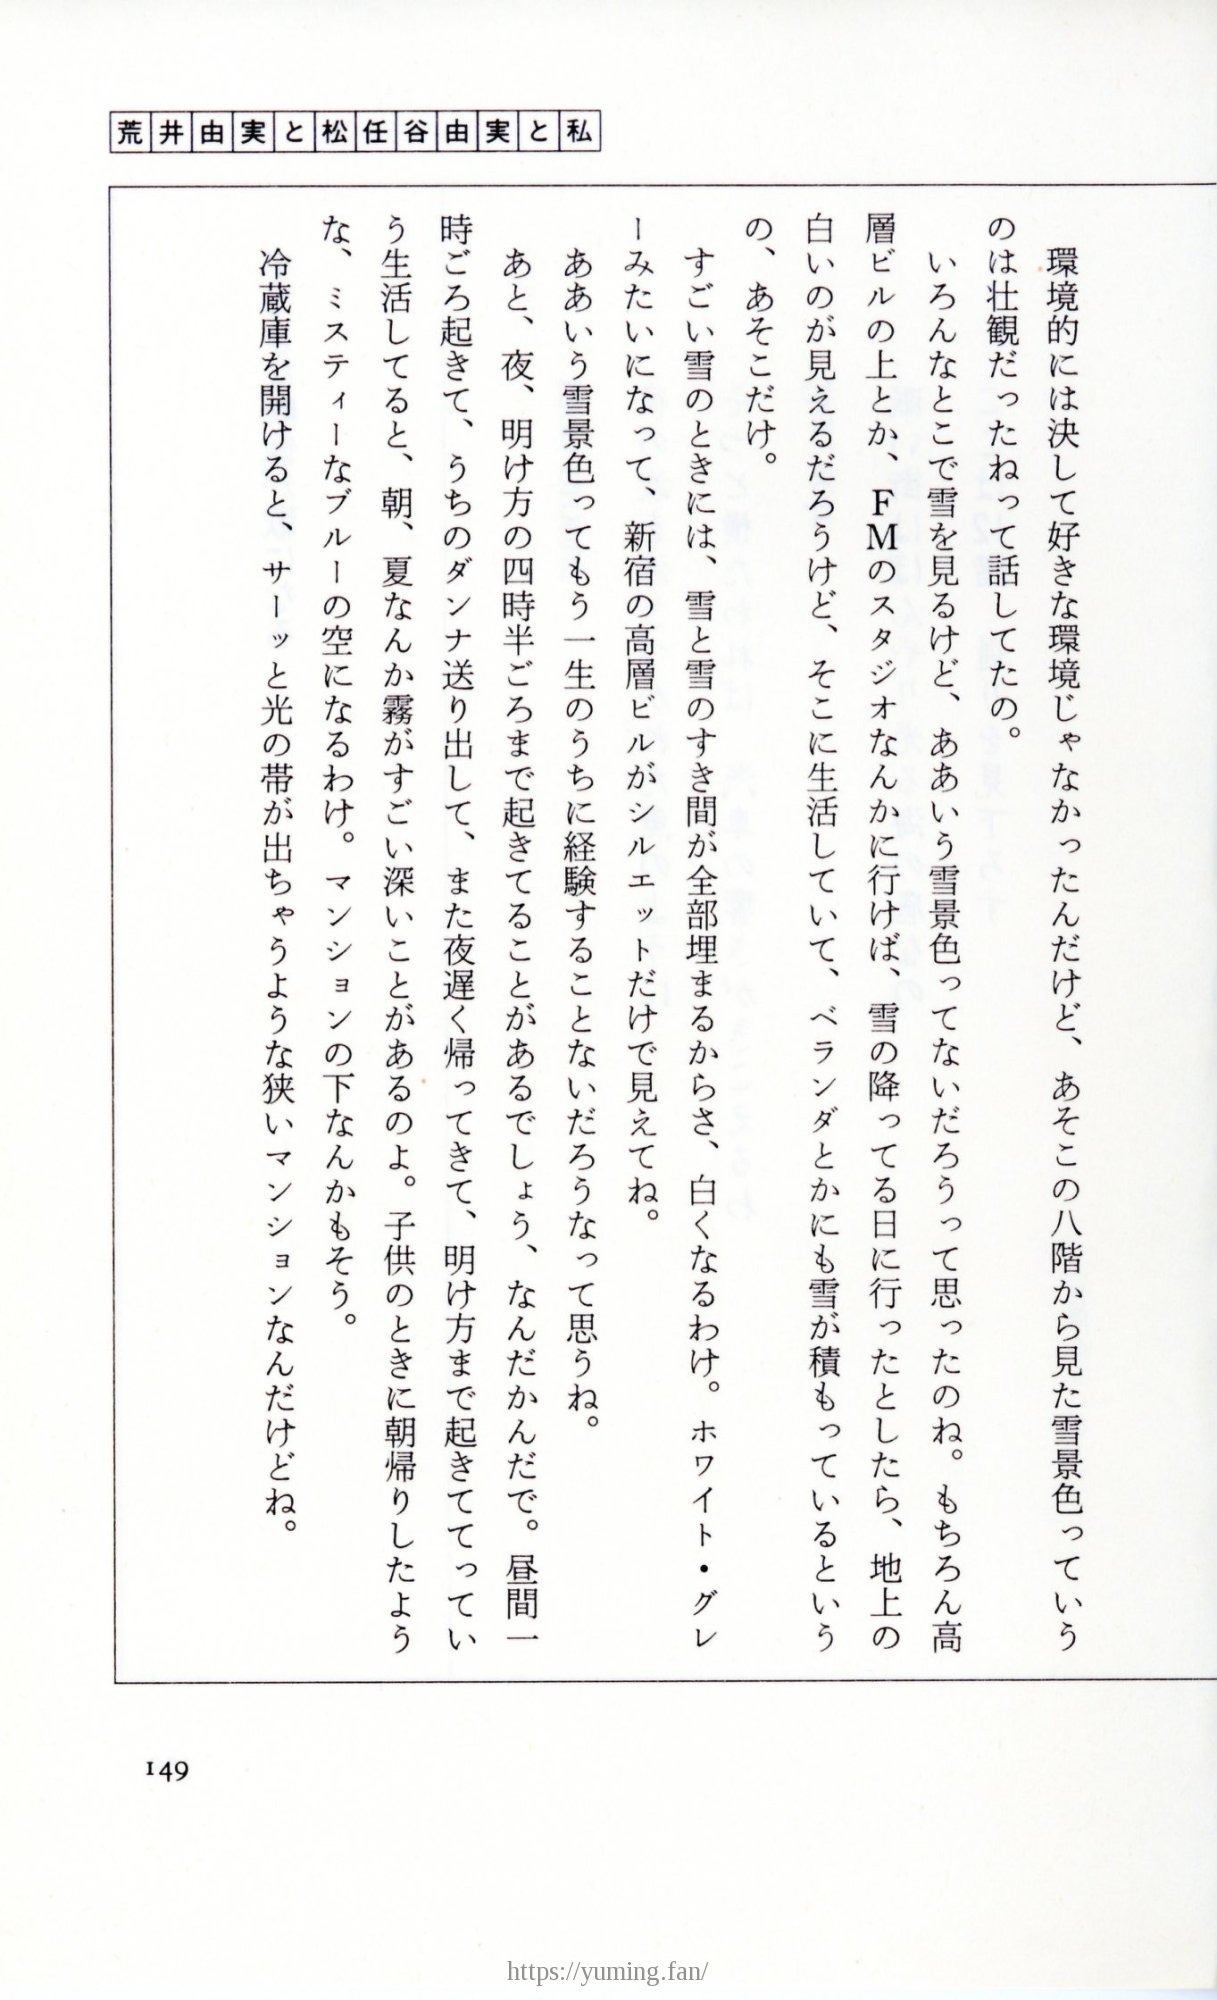 荒井由実と松任谷由実と私
環境的には決して好きな環境じゃなかったんだけど、あそこの八階から見た雪景色っていう
のは壮観だったねって話してたの。
いろんなとこで雪を見るけど、ああいう雪景色ってないだろうって思ったのね。もちろん高
層ビルの上とか、FMのスタジオなんかに行けば、雪の降ってる日に行ったとしたら、地上の
白いのが見えるだろうけど、そこに生活していて、ベランダとかにも雪が積もっているという
の、あそこだけ。
すごい雪のときには、雪と雪のすき間が全部埋まるからさ、白くなるわけ。ホワイト・グレ
ーみたいになって、新宿の高層ビルがシルエットだけで見えてね。
ああいう雪景色ってもう一生のうちに経験することないだろうなって思うね。
あと、夜、明け方の四時半ごろまで起きてることがあるでしょう、なんだかんだで。昼間一
時ごろ起きて、うちのダンナ送り出して、また夜遅く帰ってきて、明け方まで起きてってい
う生活してると、朝、夏なんか霧がすごい深いことがあるのよ。子供のときに朝帰りしたよう
な、ミスティーなブルーの空になるわけ。マンションの下なんかもそう。
冷蔵庫を開けると、サーッと光の帯が出ちゃうような狭いマンションなんだけどね。
149
https://yuming.fan/